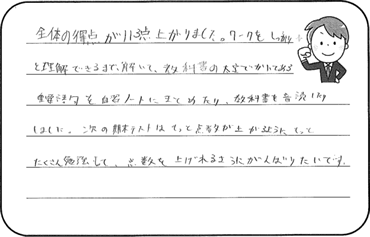 全体の得点が113点上がりました。ワークをしっかり
と理解できるまで、解いて、教科書の太字でかいてある
重要語句を自習ノートにまとめたり、教科書を音読したり
しました。次の期末テストはもっと点数が上がるようにもっと
たくさん勉強して、点数を上げれるようにがんばりたいです。